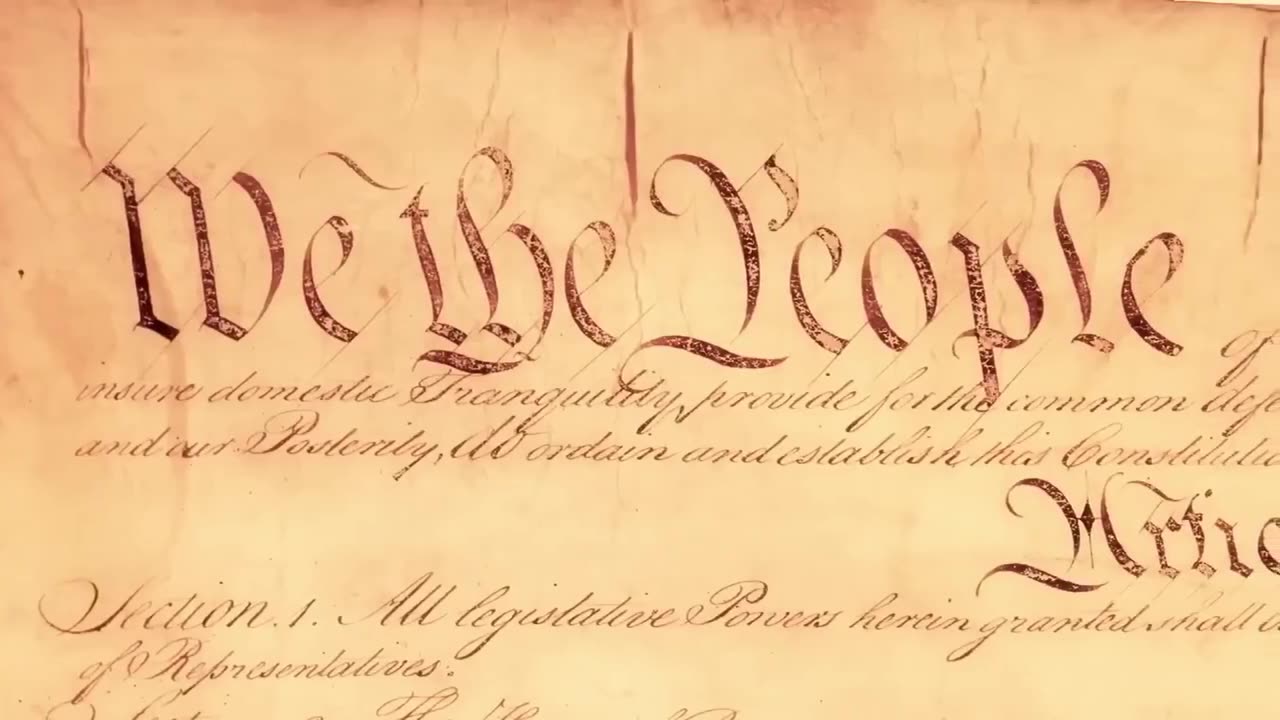 We the People of
insure domestic Tranquility, provide for the common defe
and our Posterity, do ordain and establish this Constitutio
Artic
Section. 1. All legislative Powers herein granted shall b
of Representatives.